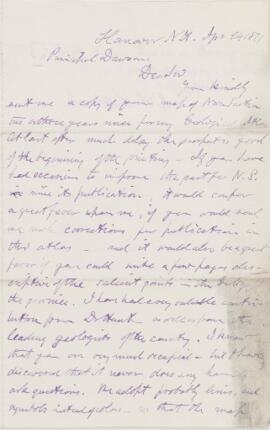 Hanover N.H. Apr 14, 87
Principal Dawson,
Dear Sir
You kindly
sent me a copy of your map of Nova Scotia
two or three years since for my Geological Atlas
At last after much delay the prospect is good
of the beginning of the printing - If you have
had occasion to improve the part for N.S.
since its publication, it would confer
a great favor upon me, if you would send
me such corrections for publication in
this atlas - and it would also be a great
favor if you could write a few pages des-
criptive of the salient points in the Geology of
the province. I have had a very valuable contri-
bution from Dr Hunt - as also from the
leading geologists of the country. I know
that you are very much occupied - but I have
discovered that it never does any harm to
ask questions. We adopt probably lines, and
symbols instead of colors - so that the map